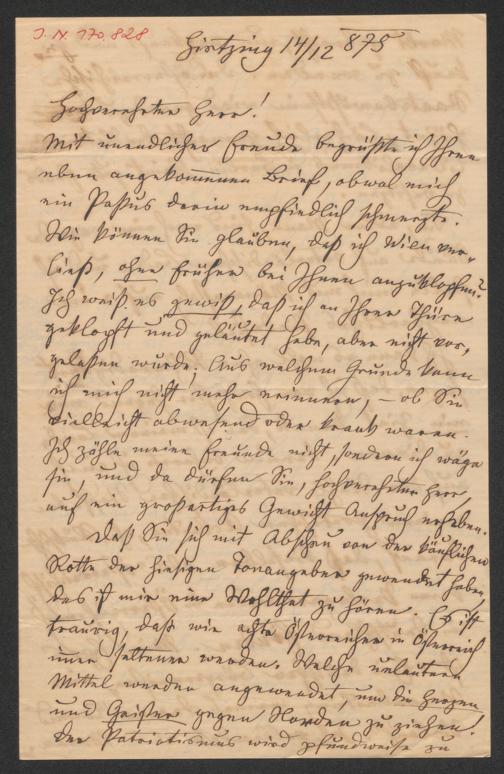 J. N. 170.828
Hietzing 14/12 875
Hochverehrter Herr!
Mit unendlicher Freude begrüßte ich Ihren
eben angekommenen Brief, obwol mich
ein Passus darin empfindlich schmerzte.
Wie können Sie glauben, daß ich Wien ver-
ließ, ohne früher bei Ihnen anzuklopfen?
Ich weiß es gewiß, daß ich an Ihrer Thüre
geklopft und geläutet habe, aber nicht vor-
gelassen wurde. Aus welchem Grunde kann
ich mich nicht mehr erinnern, – ob Sie
vielleicht abwesend oder krank waren.
Ich zähle meine Freunde nicht, sondern ich wäge
sie, und da dürfen Sie, hochverehrter Herr,
auf ein großartiges Gewicht Anspruch erheben.
Daß Sie sich mit Abscheu von der käuflichen
Rotte der hiesigen Tonangeber gewendet haben,
das ist mir eine Wohlthat zu hören. Es ist
traurig, daß wir echte Österreicher in Österreich
immer seltener werden. Welche unlautern
Mittel werden angewendet, um die Herzen
und Geister gegen Norden zu ziehen!
Der Patriotismus wird pfundweise zu